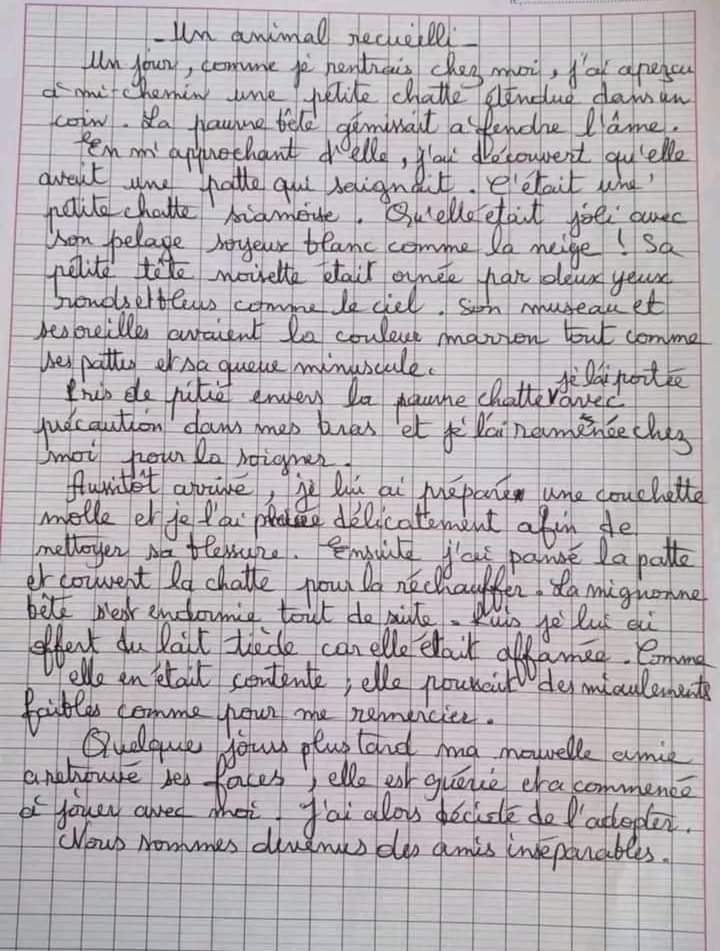 - Un animal recueilli -
Un jour, comme je rentrais chez moi, j'ai aperçu
à mi-chemin une petite chatte étendue dans un
coin. La pauvre bête gémissait à fendre l'âme.
En m'approchant d'elle, j'ai découvert qu'elle
avait une patte qui saignait. C'était une
petite chatte siamoise. Qu'elle était joli avec
son pelage soyeux blanc comme la neige ! Sa
petite tête noisette était ornée par deux yeux
ronds et bleus comme le ciel. Son museau et
ses oreilles avaient la couleur marron tout comme
ses pattes et sa queue minuscule.
Pris de pitié envers la pauvre chatte je l'ai portée avec
précaution dans mes bras et je l'ai ramenée chez
moi pour la soigner.
Aussitôt arrivé, je lui ai préparé une couchette
molle et je l'ai placée délicatement afin de
nettoyer sa blessure. Ensuite j'ai pansé la patte
et couvert la chatte pour la réchauffer. La mignonne
bête s'est endormie tout de suite. Puis je lui ai
offert du lait tiède car elle était affamée. Comme
elle en était contente, elle poussait des miaulements
faibles comme pour me remercier.
Quelque jours plus tard ma nouvelle amie
a retrouvé ses forces, elle est guérie et a commencé
à jouer avec moi. J'ai alors décidé de l'adopter.
Nous sommes devenus des amis inséparables.